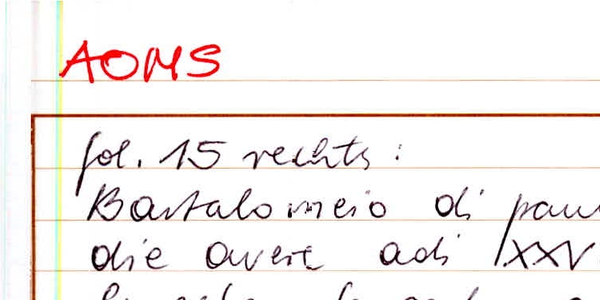 AOMS
fol. 15 rechts:
Bartalomeio di
die avere adi